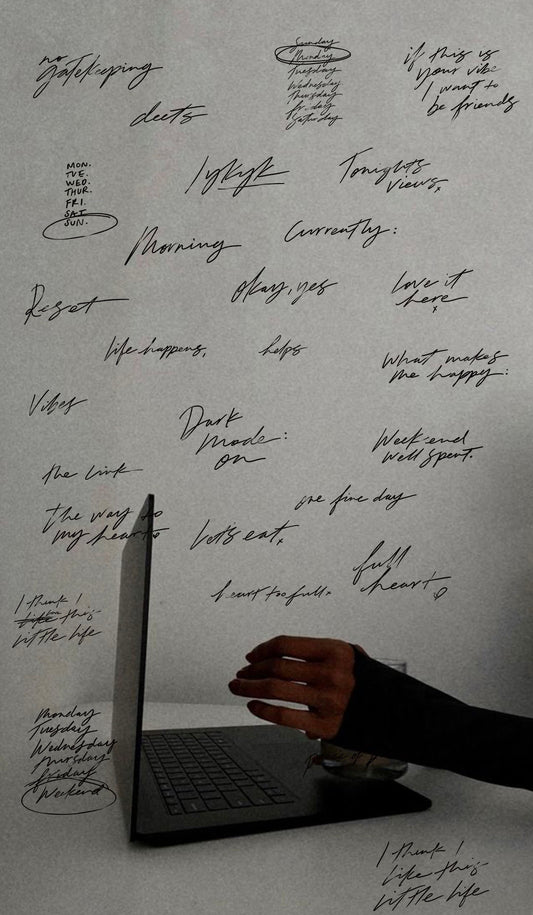 no
gatekeeping
Sunday
Monday
Tuesday
Wednesday
Thursday
Friday
Saturday
if this is
your vibe
I want to
be friends
deets
MON.
TUE.
WED.
THUR.
FRI.
SAT
SUN.
lykyk
Tonight's
views
Morning
Currently:
Reset
Okay, yes
love it
here
life happens,
helps
What makes
me happy:
Vibes
Dark
mode:
on
Weekend
well spent.
the link
one fine day
the way to
my heart
Let's eat
full
heart
heart too full
I think I
like love this
little life
Monday
Tuesday
Wednesday
Thursday
Friday
Weekend
I think I
like this
little life